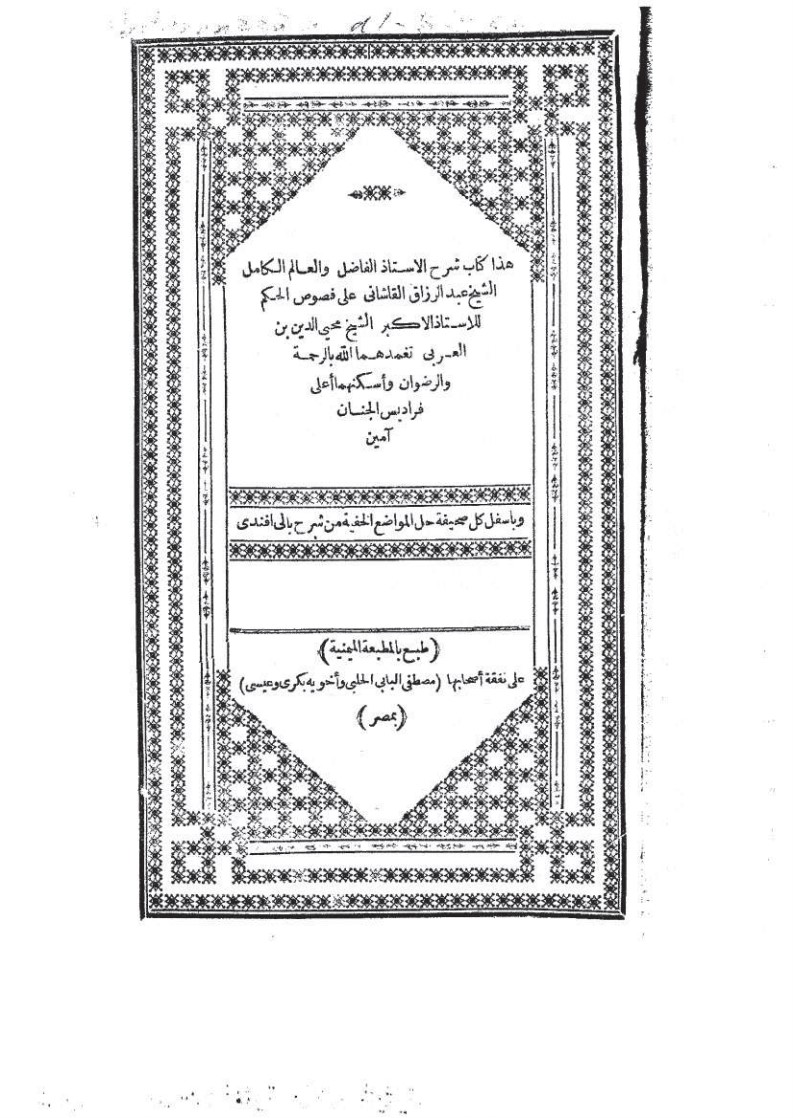 هذا كتاب شرح الاستاذ الفاضل والعالم الكامل
الشيخ عبد الرزاق القاشانى على فصوص الحكم
للاستاذ الاكبر الشيخ محيي الدين بن
العربى تغمدهما الله بالرحمة
والرضوان وأسكنهما أعلى
فراديس الجنان
آمين
وباسفل كل صحيفة حل المواضع الخفية من شرح بالى افندى
(طبع بالمطبعة الميمنية)
على نفقة أصحابها (مصطفى البابى الحلبى وأخويه بكرى وعيسى)
(بمصر)